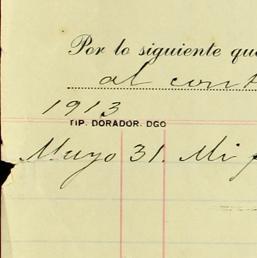 Por lo siguiente que
al cont
1913
TIP. DORADOR. DGO
Mayo 31. Mi